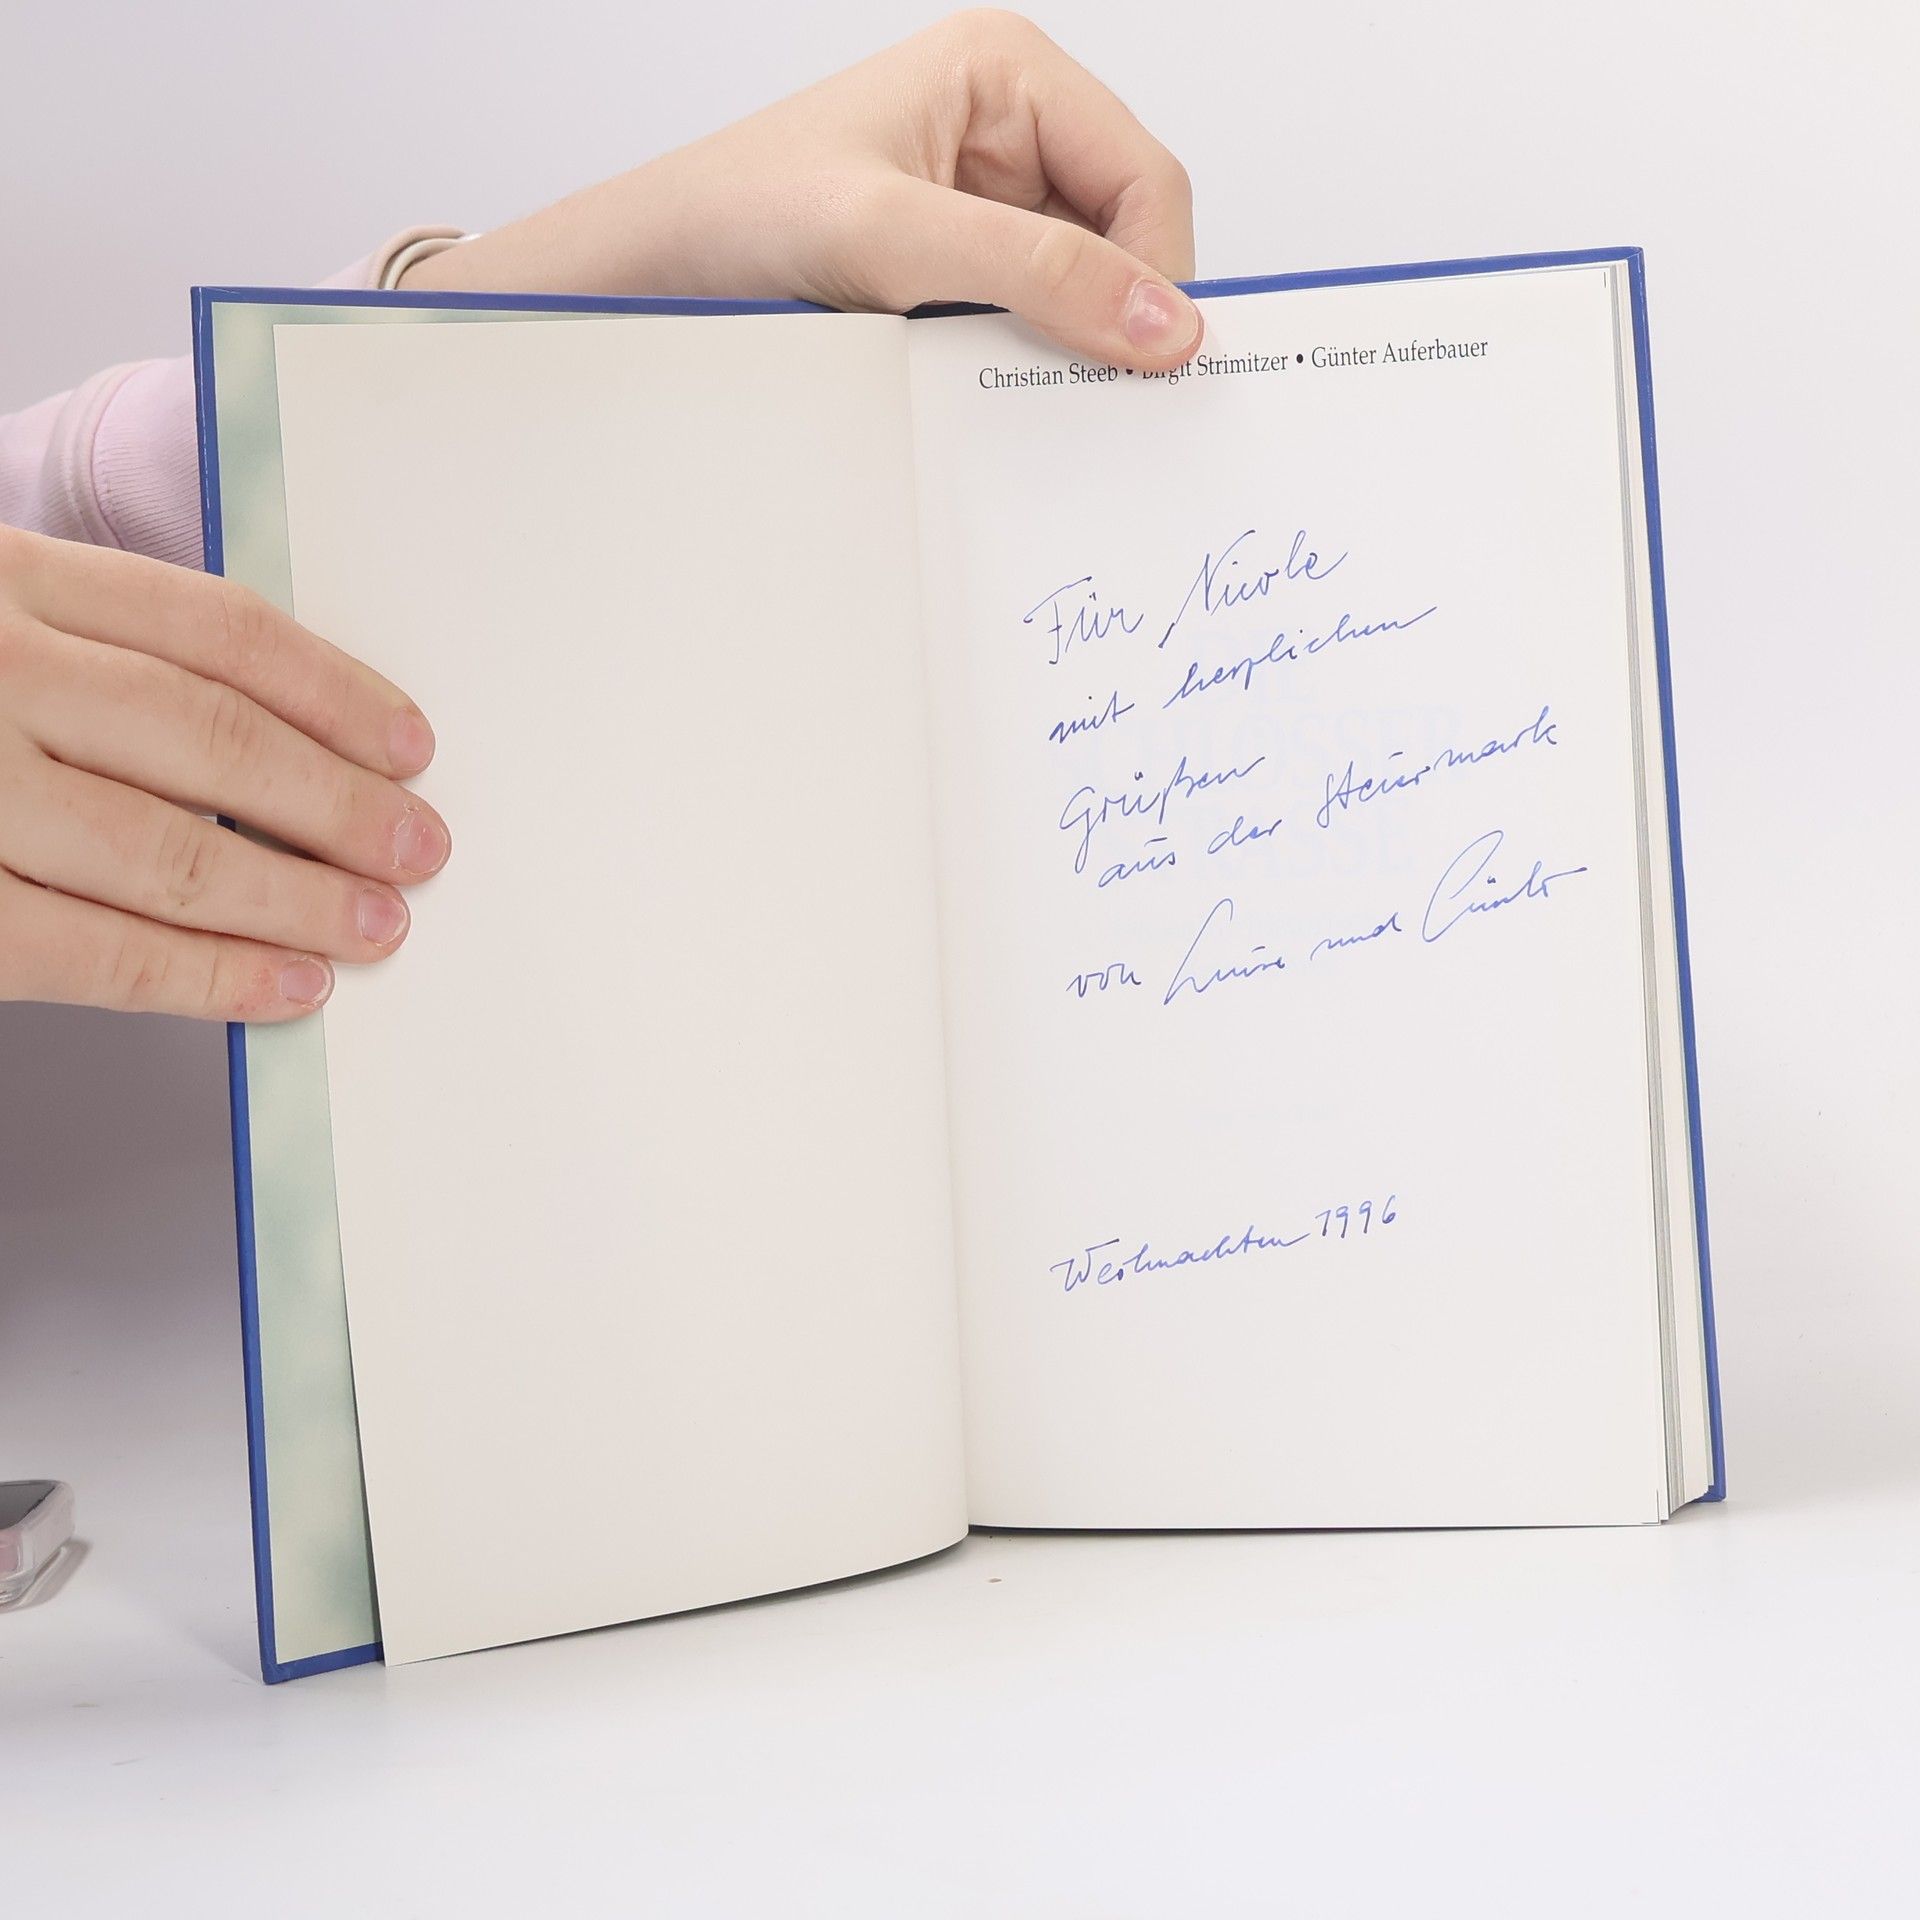 Christian Steeb • Birgit Strimitzer • Günter Auferbauer
Für Nicole
mit herzlichen
Grüßen
aus der Steiermark
von Luise und Günter
Weihnachten 1996
DIE
SCHLÖSSER
STRASSE